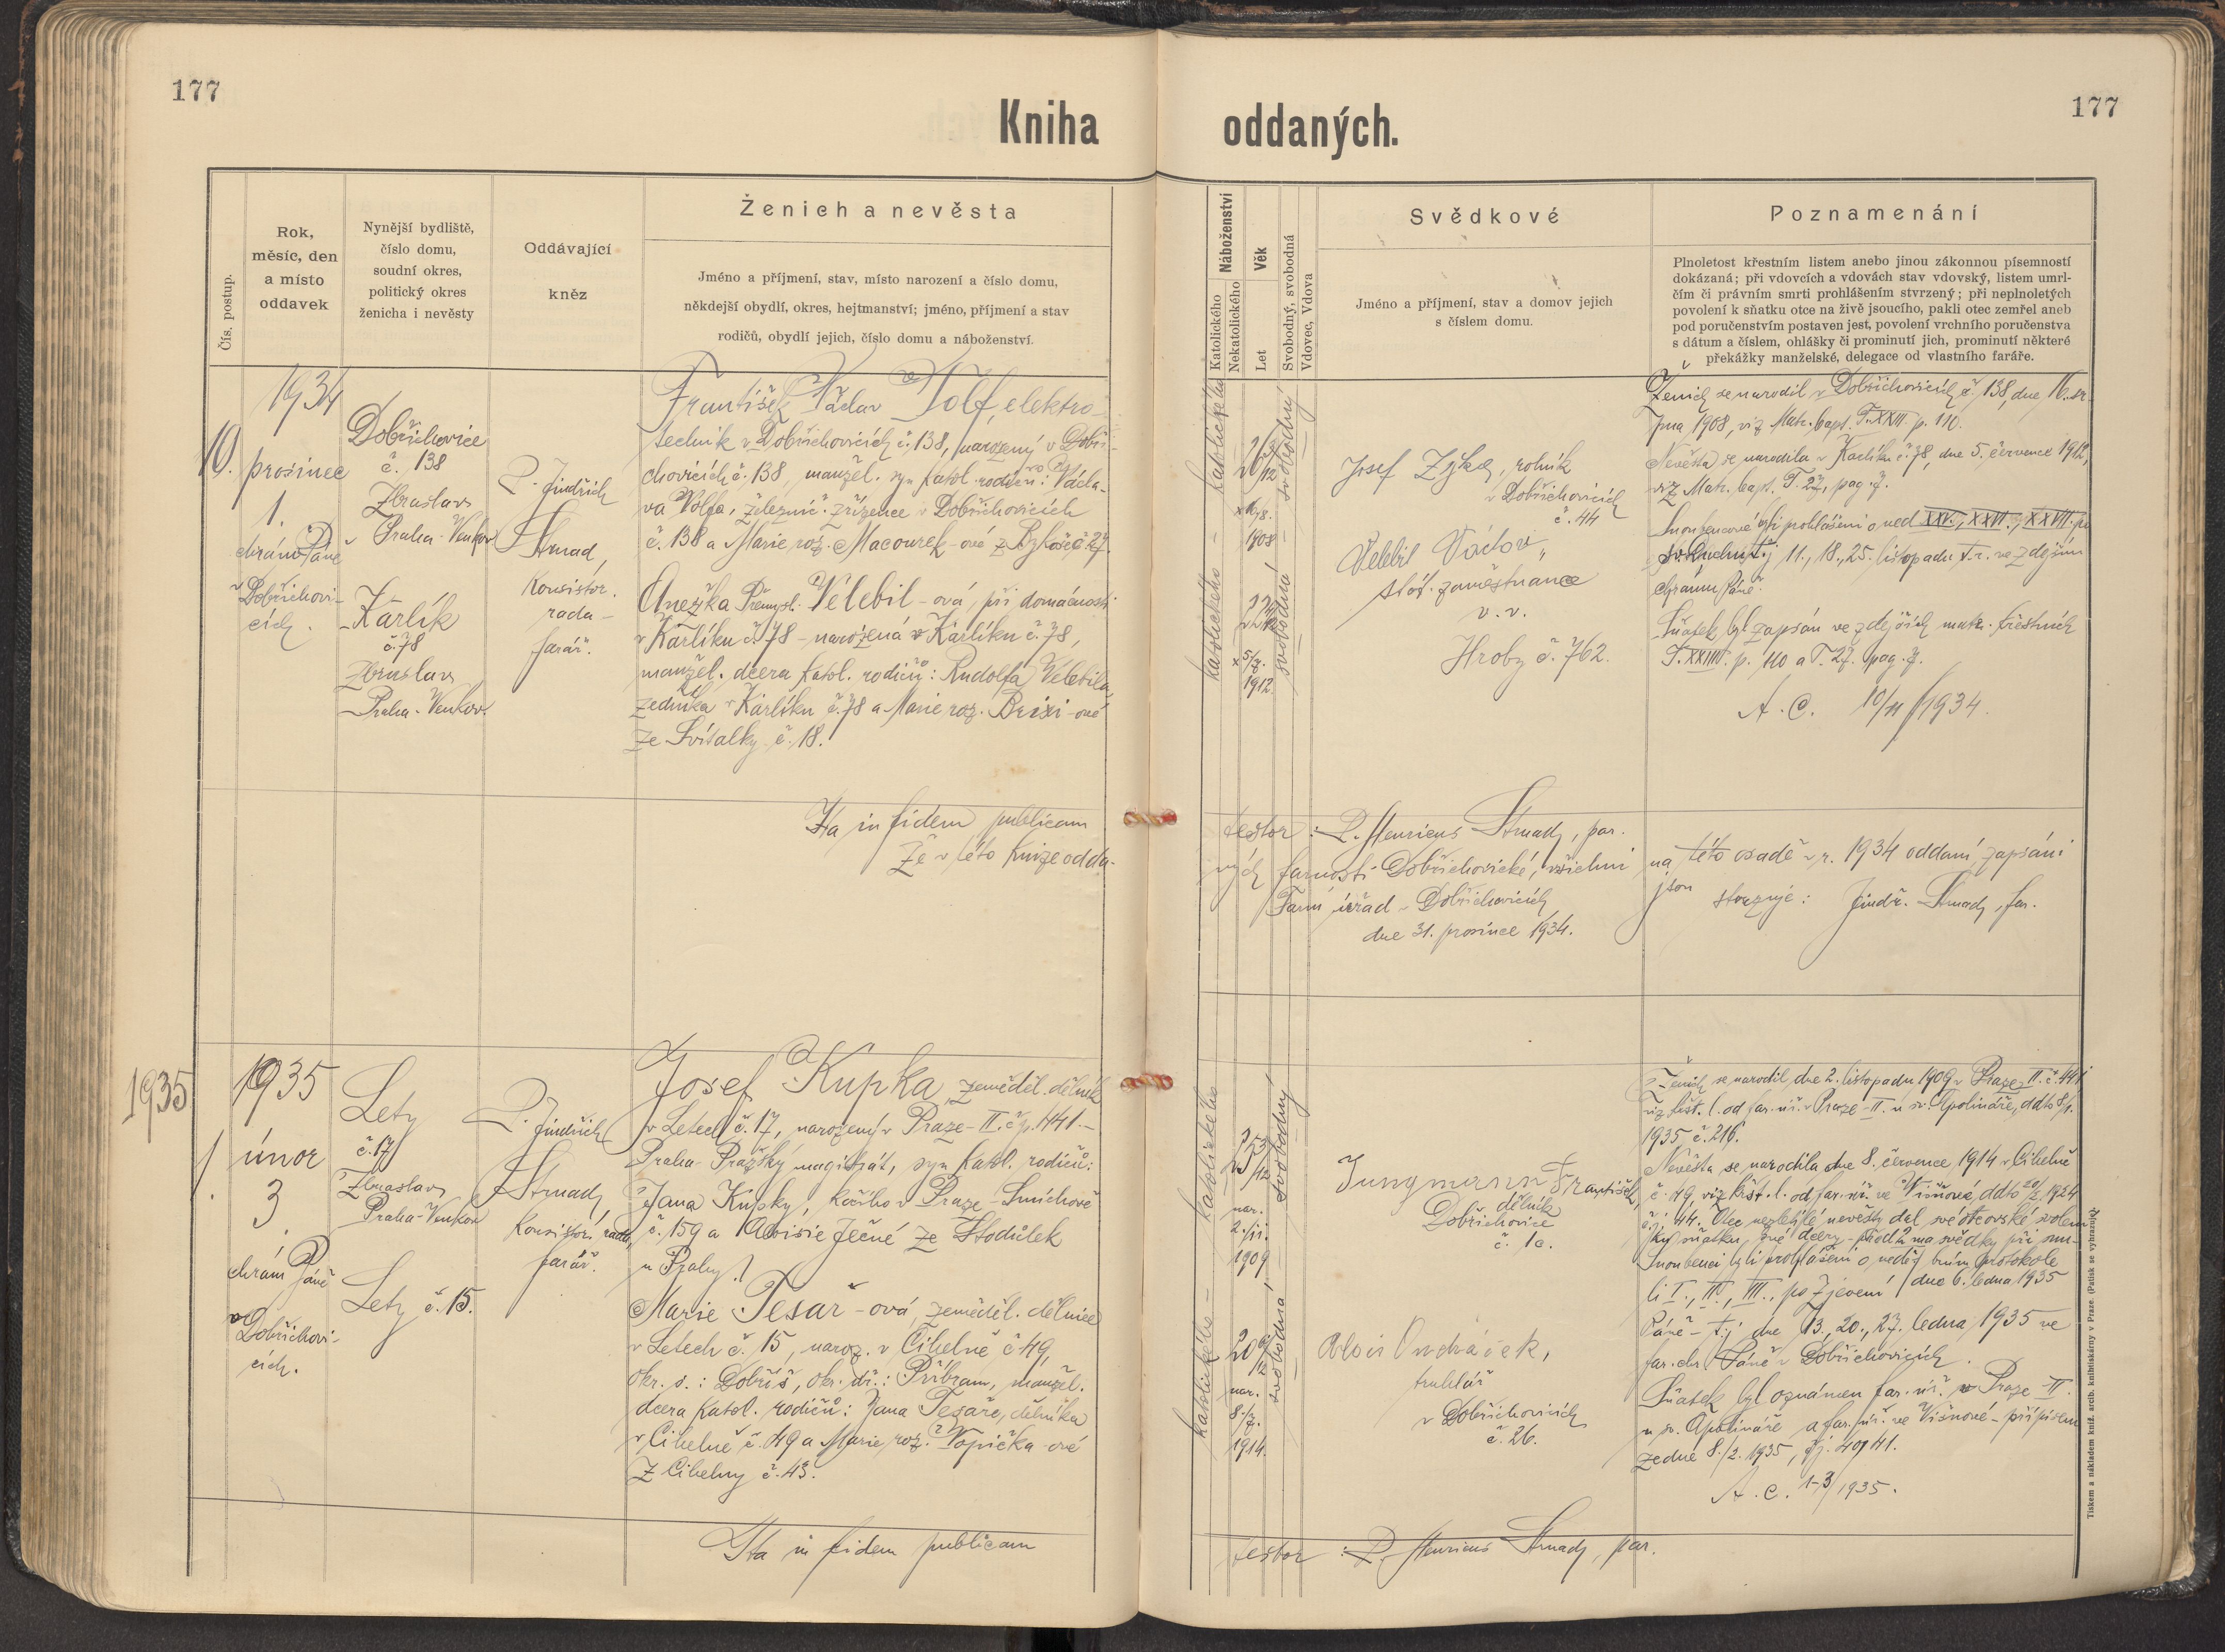 177
177
Kniha oddaných.
Čís. postup.
Rok,
měsíc, den
a místo
oddavek
Nynější bydliště,
číslo domu,
soudní okres,
politický okres
ženicha i nevěsty
Oddávající
kněz
Ženich a nevěsta
Jméno a příjmení, stav, místo narození a číslo domu,
někdejší obydlí, okres, hejtmanství; jméno, příjmení a stav
rodičů, obydlí jejich, číslo domu a náboženství.
Náboženství
Katolického
Nekatolického
Věk
Let
Svobodný, svobodná
Vdovec, Vdova
Svědkové
Jméno a příjmení, stav a domov jejich
s číslem domu.
Poznamenání
Plnoletost křestním listem anebo jinou zákonnou písemností
dokázaná; při vdovcích a vdovách stav vdovský, listem umrl-
čím či právním smrti prohlášením stvrzený; při neplnoletých
povolení k sňatku otce na živě jsoucího, pakli otec zemřel aneb
pod poručenstvím postaven jest, povolení vrchního poručenstva
s dátum a číslem, ohlášky či prominutí jich, prominutí některé
překážky manželské, delegace od vlastního faráře.
10.
1934
prosinec
1.
chrám Páně
v Dobřichovi-
cích.
Dobřichovice
č. 138
Zbraslav
Praha-Venkov
Karlík
č. 78
Zbraslav
Praha-Venkov.
P. Jindřich
Strnad,
konsistor.
rada -
farář.
František Václav Volf, elektro-
technik v Dobřichovicích č. 138, narozený v Dobři-
chovicích č. 138, manžel. syn katol. rodičů: Václa-
va Volfa, železnič. zřízence v Dobřichovicích
č. 138 a Marie roz. Macourek-ové z
Anežka Přemysl. Velebil-ová, při domácnosti
v Karlíku č. 78 - narozená v Karlíku č. 78,
manžel. dcera katol. rodičů: Rudolfa Velebila,
zedníka v Karlíku č. 78 a Marie roz. Brixi-ové
ze Svítalky č. 18.
katolického - katolického
26 3/12
1908
22
× 5/7.
1912.
svobodný
svobodná
Josef Zýka, rolník
v Dobřichovicích
č. 44
Velebil Václav,
stát. zaměstnanec
v. v.
Hroby č. 762.
Ženich se narodil v Dobřichovicích č. 138, dne 16. sr-
pna 1908, viz Matr. bapt. T. XXIII. p. 110.
Nevěsta se narodila v Karlíku č. 78, dne 5. července 1912,
viz Matr. bapt. T. 27, pag. 7.
Snoubencové byli prohlášeni o ned. XXV., XXVI., XXVII. po
sv. Duchu, t.j. 11., 18., 25. listopadu t. r. ve zdejším
chrámu Páně.
Sňatek byl zapsán ve zdejších matr. křestních
T. XXIII. p. 110 a T. 27. pag. 7.
A. C. 10/11 1934.
Ita in fidem publicam
testor: P. Henricus Strnad, par.
Že v této knize odda-
ných farnosti Dobřichovické, všichni na této osadě v r. 1934 oddaní, zapsáni
jsou
Farní úřad v Dobřichovicích
stvrzuje: Jindř. Strnad, far.
dne 31. prosince 1934.
1935
1.
1935
únor
3.
chrám Páně
v Dobřichovi-
cích.
Lety
č. 17
Zbraslav
Praha-Venkov
Lety č. 15.
P. Jindřich
Strnad,
konsistor. rada,
farář.
Josef Kupka, zeměděl. dělník
v Letech č. 17, narozený v Praze-II. čp. 441.-
Praha-Pražský magistrát, syn katol. rodičů:
Jana Kupky, kočího v Praze-Smíchově
č. 159 a Aloisie Ječné ze Stodůlek
u Prahy.
Marie Tesař-ová, zeměděl. dělnice
v Letech č. 15, naroz. v Cihelně č. 49,
okr. s.: Dobříš, okr. úř.: Příbram, manžel.
dcera katol. rodičů: Jana Tesaře, dělníka
v Cihelně č. 49 a Marie roz. Topička-ové
z Cihelny č. 43.
katolického - katolického
25 3/12
nar.
2./11.
1909
20 6/12
nar.
8./7.
1914.
svobodný
svobodná
Jungmann František,
dělník
Dobřichovice
č. 10.
Alois Ondráček,
truhlář
v Dobřichovicích
č. 26.
Ženich se narodil dne 2. listopadu 1909 v Praze-II. č. 441
viz křst. l. od far. úř. v Praze-II. u sv. Apolináře, ddto 8/1.
1935 č. 216.
Nevěsta se narodila dne 8. července 1914 v Cihelně
č. 49, viz křst. l. od far. úř. ve Višňové, ddto 1924
č. 44. Otec nezletilé nevěsty dal své otcovské svolení
ky sňatku své dcery - před 2ma svědky při snu-
Snoubenci byli prohlášeni o neděl. bním protokole
li I., II., III., po Zjevení / dne 6. ledna 1935
Páně - t.j. dne 13., 20., 27. ledna 1935 ve
far. chr. Páně v Dobřichovicích.
Sňatek byl oznámen far. úř. v Praze-II.
u sv. Apolináře a far. úř. ve Višňové - přípisem
ze dne 8./2. 1935, čj. 40, 41.
A. C. 1-3/1935.
Ita in fidem publicam
testor: P. Henricus Strnad, par.
Tiskem a nákladem kníž. arcib. knihtiskárny v Praze. (Patisk se vyhrazuje.)